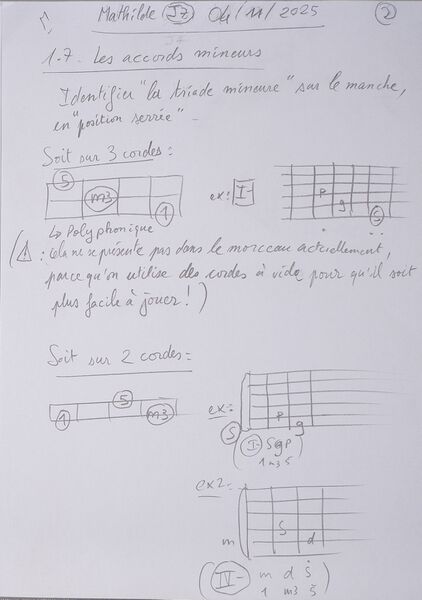 Mathilde J7 04/11/2025 2
1.7. Les accords mineurs
Identifier "la triade mineure" sur le manche,
en "position serrée"
Soit sur 3 cordes :
5
m3
1
ex: I-
P
g
S
↳ Polyphonique
(⚠ : cela ne se présente pas dans le morceau actuellement,
parce qu'on utilise des cordes à vide pour qu'il soit
plus facile à jouer !)
Soit sur 2 cordes :
5
1 m3
ex:
P
S g
(I- S g P
1 m3 5
ex2 =
S
m d
(IV- m d Ṡ )
1 m3 5